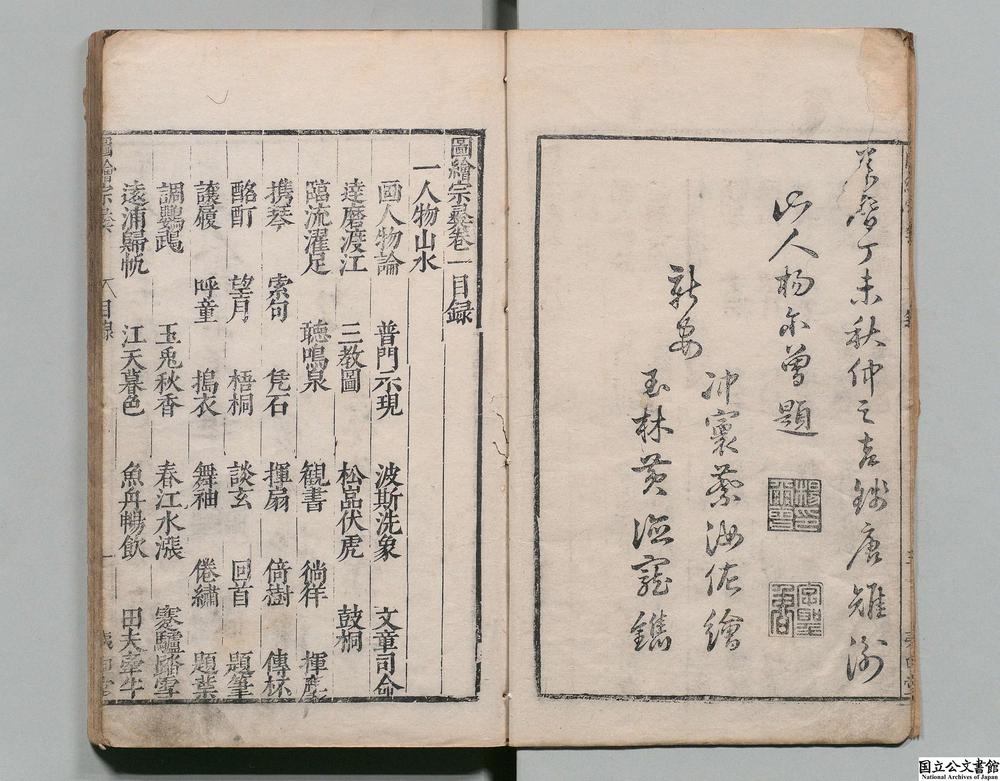 萬曆丁未秋仲之吉錢唐雉衡
山人楊爾曾題
新安
沖寰蔡汝佐繪
玉林黃德寵鐫
楊印爾曾
圖繪宗彝卷一目録
一人物山水
画人物論 普門示現 波斯洗象 文章司命
達磨渡江 三教圖 松嵓伏虎 鼓桐
臨流濯足 聽鳴泉 観書 徜徉 揮麈
携琴 索句 凭石 揮扇 倚樹 傳杯
酩酊 望月 梧桐 談玄 回首 題筆
讓履 呼童 搗衣 舞袖 倦繡 題葉
調鸚鵡 玉兎秋香 春江水漲 寒驢踏雪
遠浦歸帆 江天暮色 魚舟暢飲 田夫牽牛
圖繪宗彝 目録 一
国立公文書館
National Archives of Japan